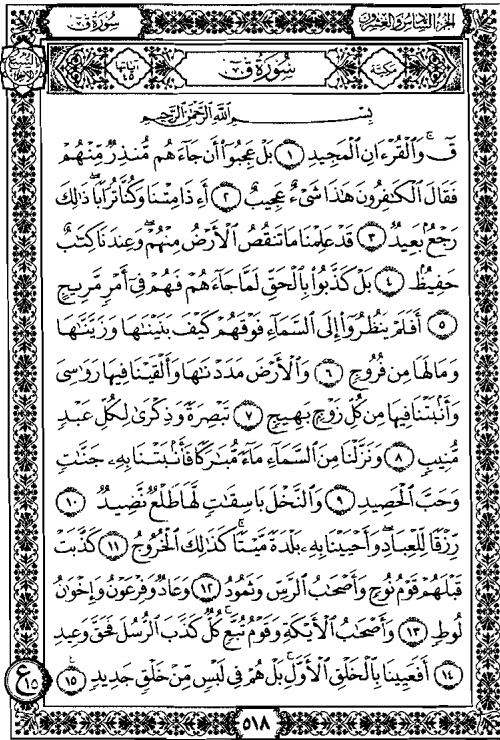 الجزء السادس والعشرون
سورة ق
مكية
سورة ق
آياتها ٤٥
بسم الله الرحمن الرحيم
قٓۚ وَٱلۡقُرۡءَانِ ٱلۡمَجِيدِ ١ بَلۡ عَجِبُوٓاْ أَن جَآءَهُم مُّنذِرٞ مِّنۡهُمۡ
فَقَالَ ٱلۡكَٰفِرُونَ هَٰذَا شَيۡءٌ عَجِيبٌ ٢ أَءِذَا مِتۡنَا وَكُنَّا تُرَابٗاۖ ذَٰلِكَ
رَجۡعُۢ بَعِيدٞ ٣ قَدۡ عَلِمۡنَا مَا تَنقُصُ ٱلۡأَرۡضُ مِنۡهُمۡۖ وَعِندَنَا كِتَٰبٌ
حَفِيظُۢ ٤ بَلۡ كَذَّبُواْ بِٱلۡحَقِّ لَمَّا جَآءَهُمۡ فَهُمۡ فِيٓ أَمۡرٖ مَّرِيجٍ
٥ أَفَلَمۡ يَنظُرُوٓاْ إِلَى ٱلسَّمَآءِ فَوۡقَهُمۡ كَيۡفَ بَنَيۡنَٰهَا وَزَيَّنَّٰهَا
وَمَا لَهَا مِن فُرُوجٖ ٦ وَٱلۡأَرۡضَ مَدَدۡنَٰهَا وَأَلۡقَيۡنَا فِيهَا رَوَٰسِيَ
وَأَنۢبَتۡنَا فِيهَا مِن كُلِّ زَوۡجِۭ بَهِيجٖ ٧ تَبۡصِرَةٗ وَذِكۡرَىٰ لِكُلِّ عَبۡدٖ
مُّنِيبٖ ٨ وَنَزَّلۡنَا مِنَ ٱلسَّمَآءِ مَآءٗ مُّبَٰرَكٗا فَأَنۢبَتۡنَا بِهِۦ جَنَّٰتٖ
وَحَبَّ ٱلۡحَصِيدِ ٩ وَٱلنَّخۡلَ بَاسِقَٰتٖ لَّهَا طَلۡعٞ نَّضِيدٞ ١٠
رِّزۡقٗا لِّلۡعِبَادِۖ وَأَحۡيَيۡنَا بِهِۦ بَلۡدَةٗ مَّيۡتٗاۚ كَذَٰلِكَ ٱلۡخُرُوجُ ١١ كَذَّبَتۡ
قَبۡلَهُمۡ قَوۡمُ نُوحٖ وَأَصۡحَٰبُ ٱلرَّسِّ وَثَمُودُ ١٢ وَعَادٞ وَفِرۡعَوۡنُ وَإِخۡوَٰنُ
لُوطٖ ١٣ وَأَصۡحَٰبُ ٱلۡأَيۡكَةِ وَقَوۡمُ تُبَّعٖۚ كُلّٞ كَذَّبَ ٱلرُّسُلَ فَحَقَّ وَعِيدِ
١٤ أَفَعَيِينَا بِٱلۡخَلۡقِ ٱلۡأَوَّلِۚ بَلۡ هُمۡ فِي لَبۡسٖ مِّنۡ خَلۡقٖ جَدِيدٖ ١٥
ع ١٥
٥١٨